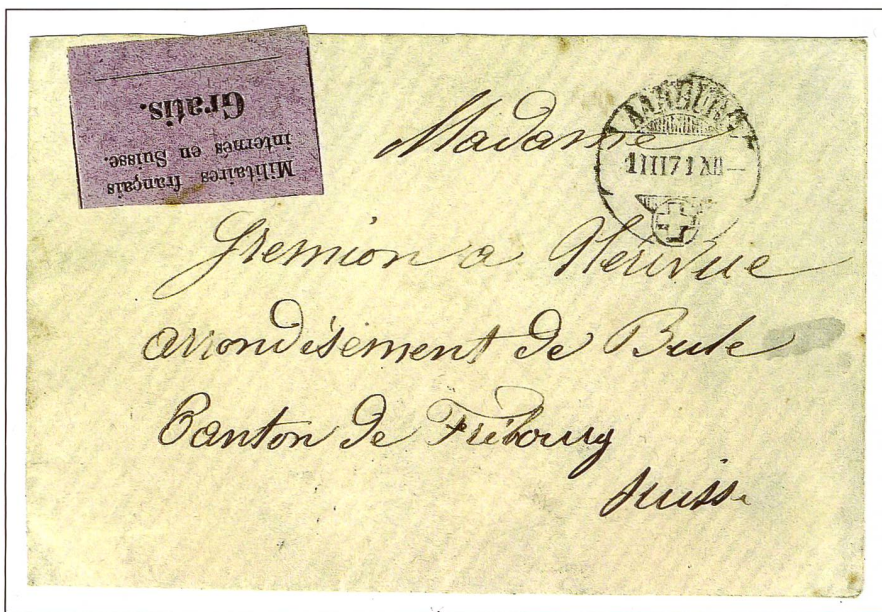 Militaires français
internés en Suisse.
Gratis.
AARBURG
1 III 71 XII—
Madame
Gremion a Nerivue
arrondisement de Bule
Canton de Fribourg
Suisse